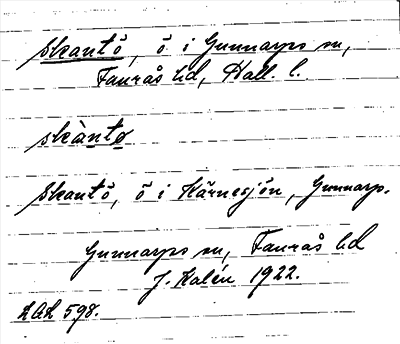 Skantö, ö i Gunnarps sn,
Faurås hd, Hall. l.
skànto
Skantö, ö i Kärnesjön, Gunnarp.
Gunnarps sn, Faurås hd
J. Kalén 1922.
LAL 598.